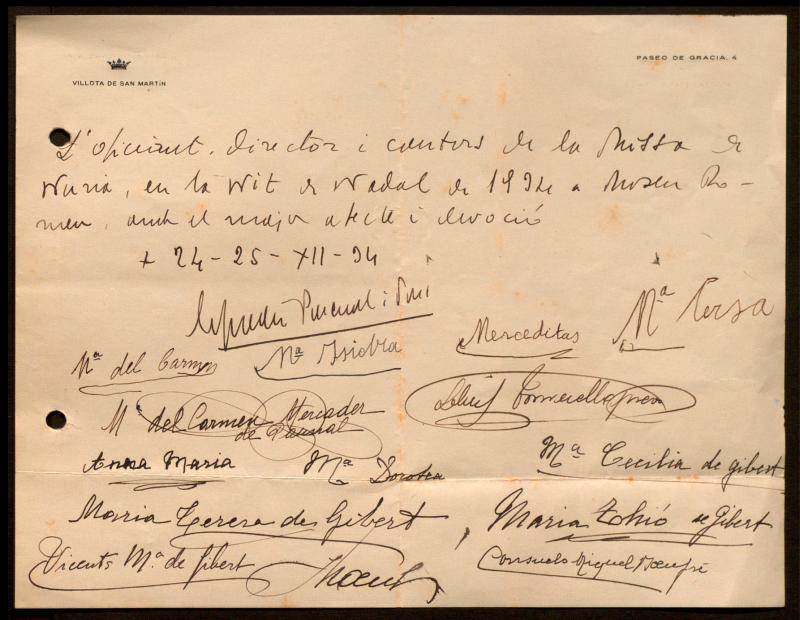 VILLOTA DE SAN MARTÍN
PASEO DE GRACIA, 4
L'oficiant, director i cantors de la Missa de
Nuria, en la Nit de Nadal de 1934 a Mossen Ro-
meu, amb el major afecte i devoció
+ 24-25-XII-34
Pascual i
Mª Teresa
Merceditas
Mª Isidra
Mª del Carmen
Mª del Carmen Mercader
de Pascual
Lluis
Anna Maria
Mª Dorotea
Mª Cecilia de Gibert
Maria Teresa de Gibert
Maria Thió de Gibert
Vicents Mª de Gibert
Consuelo Miquel